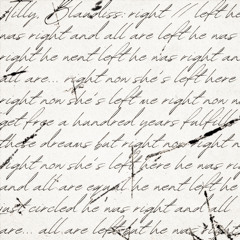 right // left he
was right and all are left he was
right he went left he was right and
all are... right now she's left here
right now she's left me right now
get free a hundred years fulfill
these dreams but right now right now
right now she's left here he was right
and all are equal he went left he
just circled he was right and all
are... all are left but he was right